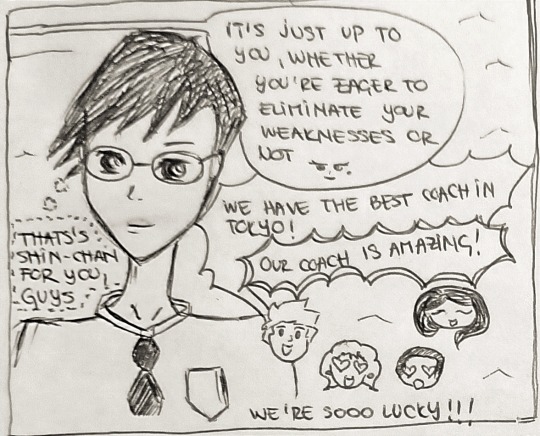 IT'S JUST UP TO
YOU, WHETHER
YOU'RE EAGER TO
ELIMINATE YOUR
WEAKNESSES OR
NOT
WE HAVE THE BEST COACH IN
TOKYO!
OUR COACH IS AMAZING!
THATS'S
SHIN-CHAN
FOR YOU,
GUYS
WE'RE SOOO LUCKY!!!